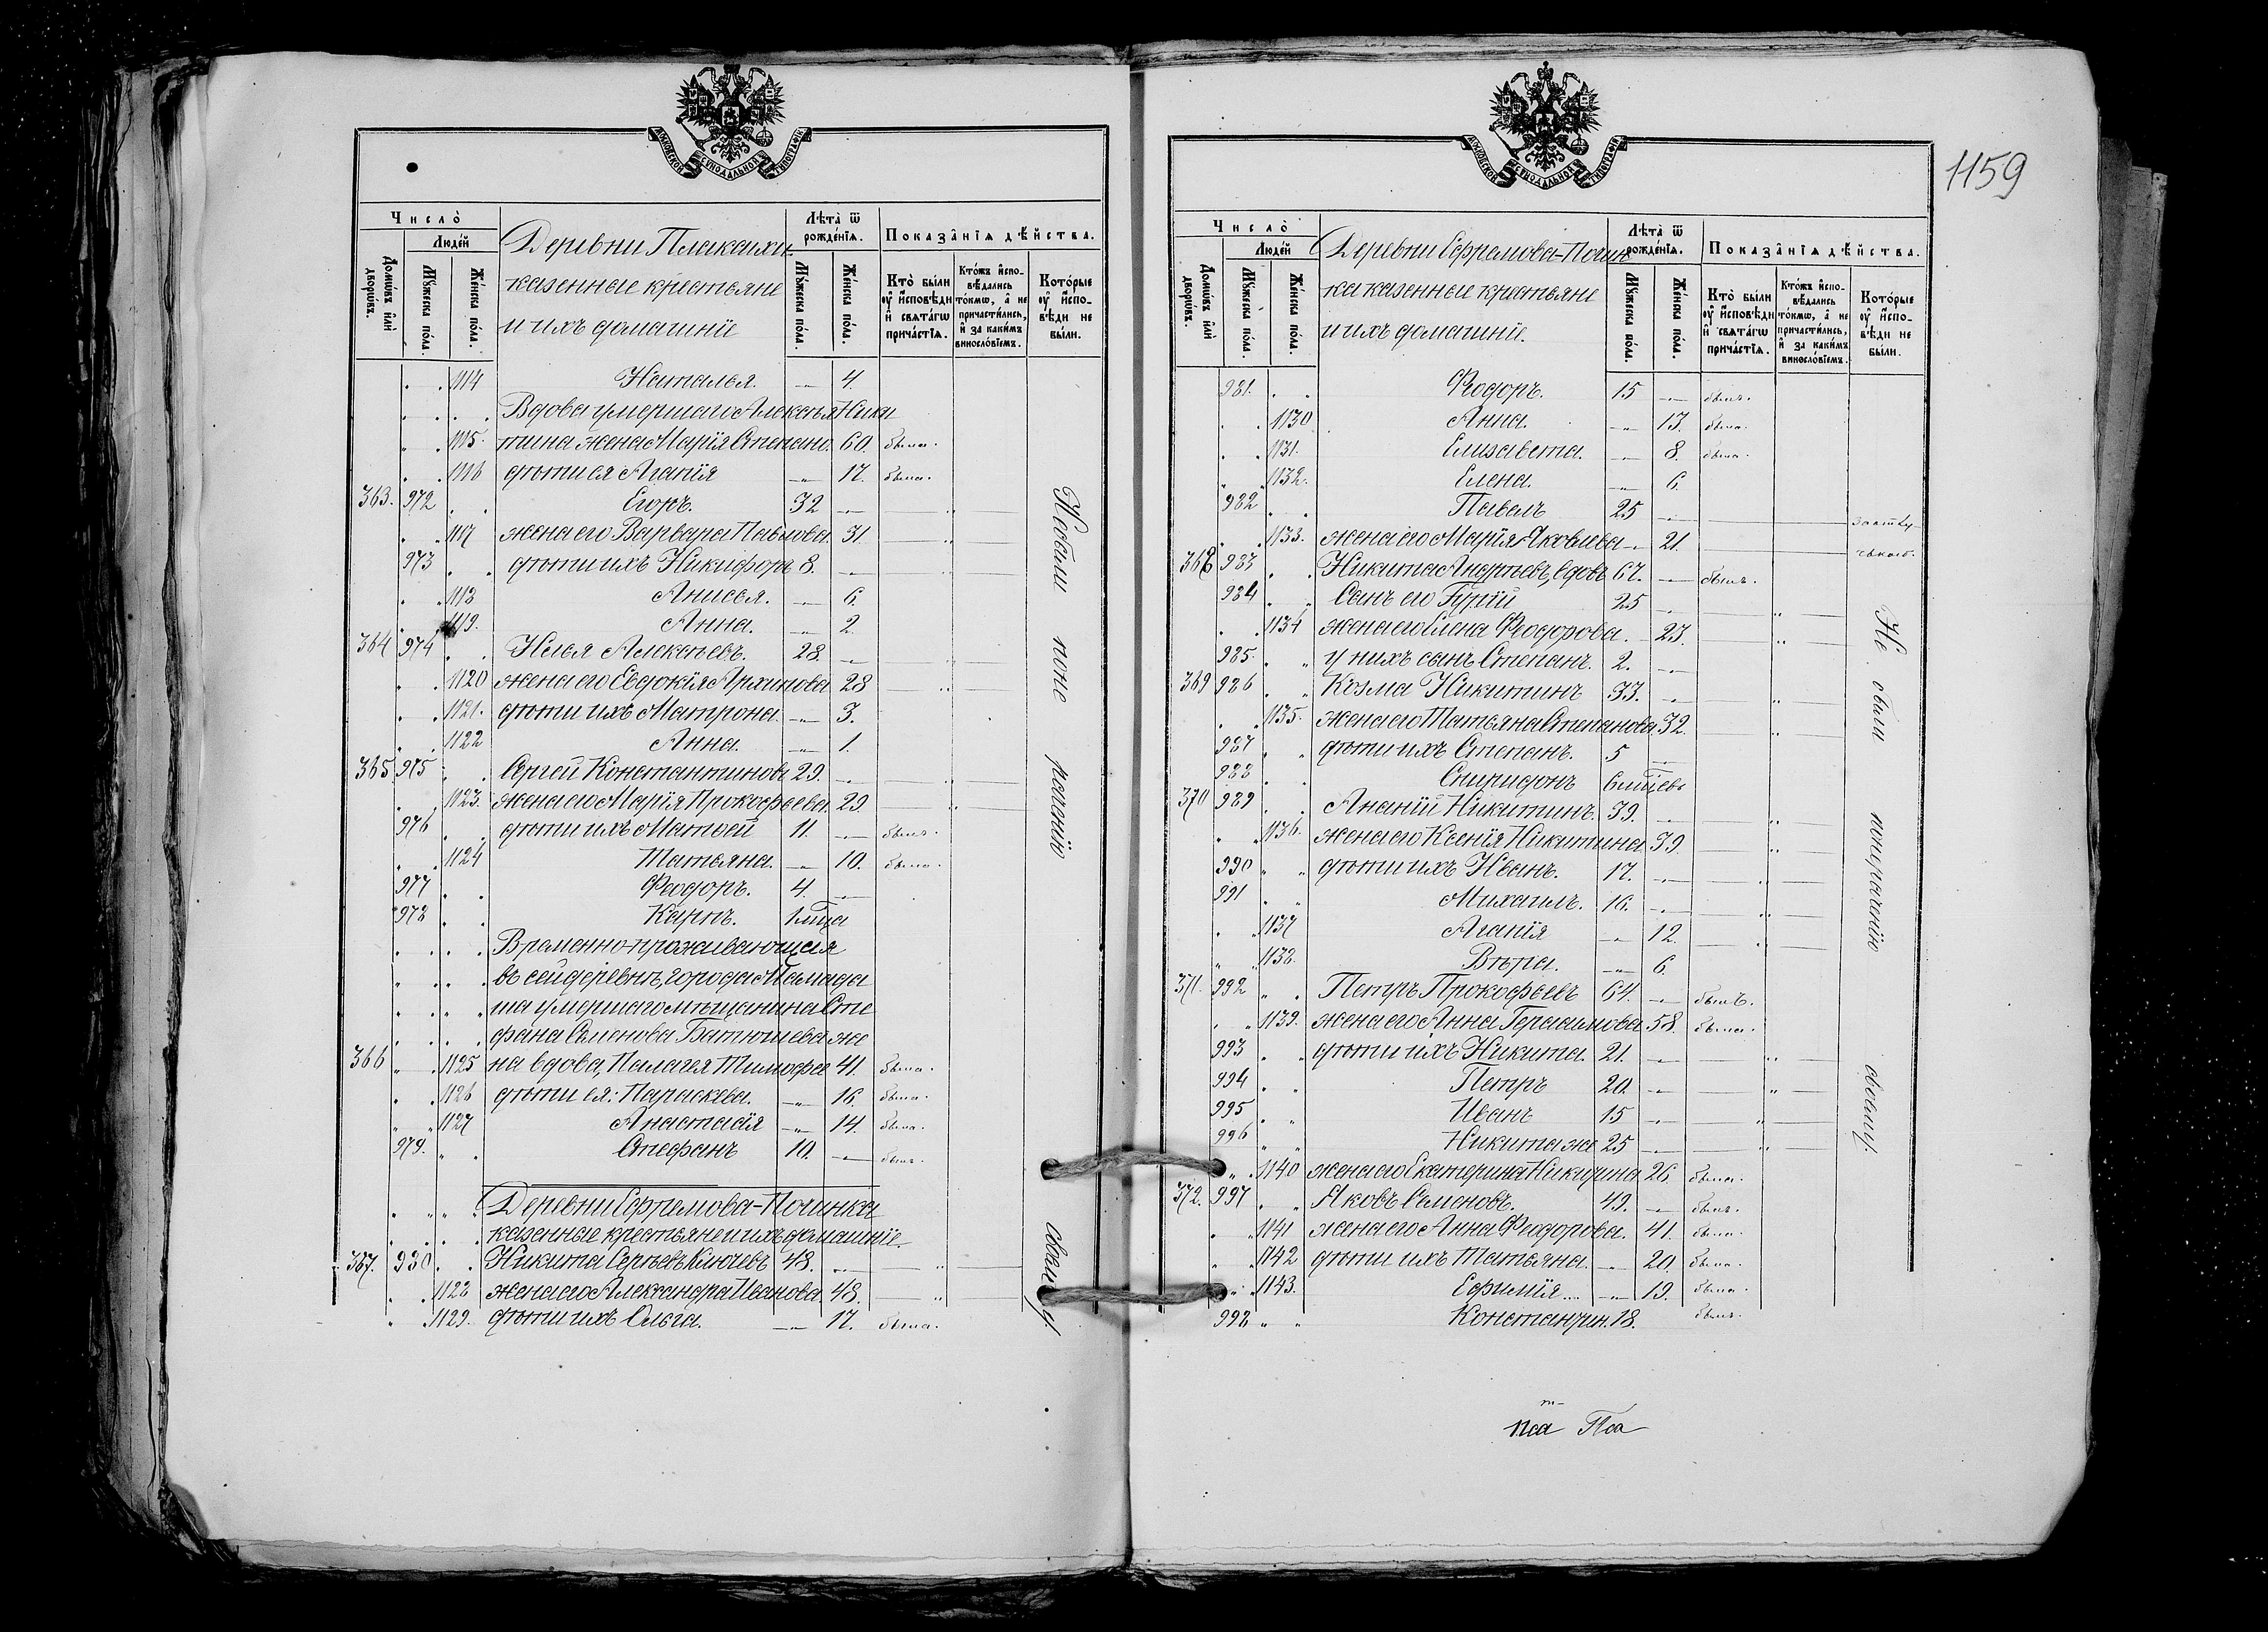 МОСКОВСКОЙ СѴНОДАЛЬНОЙ ТИПОГРАФІИ
Число̀
Людéй
Домѡ́въ и҆лѝ дворѡ́въ.
Мꙋ́жеска по́ла.
Же́нска по́ла.
Деревни Плакахи
казенные крестьяне
и ихъ домашніе
Лѣта̀ ѿ рожде́нїѧ.
Мꙋ́жеска по́ла.
Же́нска по́ла.
Показа̂нїѧ дѣ́йства.
Кто̀ бы́ли оу҆ и҆сповѣ́ди и҆ свѧта́гѡ прича́стїѧ.
Кто́жъ и҆спо-вѣ́дались то́кмѡ, а҆ не причасти́лись, и҆ за каки́мъ винослóвїемъ.
Кото́рые оу҆ и҆спо-вѣ́ди не бы́ли.
1114 Наталья. 4.
Вдова умершаго Алексѣя Ники
1115. тина жена Марія Степано. 60. была.
1116 дѣти ея Агапія 17. была.
363. 972 Егоръ. 32
1117 жена его Варвара Павлова. 31
973 дѣти ихъ Никифоръ 8.
1118 Анисья. 6.
1119. Анна. 2.
364 974 Илья Алексѣевъ. 28.
1120 жена его Евдокія Архипова 28
1121. дѣти ихъ Матрона. 3.
1122 Анна. 1.
365 975 Сергей Константиновъ 29.
1123. жена его Марія Прокофьева. 29
976 дѣти ихъ Матвей 11. былъ.
1124 Татьяна. 10. была.
977 Феодоръ. 4.
978 Карпъ. 1 мца
Временно-проживающая
въ сей деревнѣ, города Мамады
ша умершаго мѣщанина Сте
фана Семенова Батюшева же
366 1125 на вдова, Палагея Тимофее 41. была.
1126 дѣти ея: Параскева. 16. была.
1127 Анастасія 14. была.
979. Стефанъ 10. былъ.
Деревни Ефремова-Починка
казенные крестьяне и ихъ домашніе.
367. 980 Никита Сергѣевъ Ключевъ 48.
1128 жена его Александра Иванова. 48.
1129. дѣти ихъ Ольга. 17. была.
Не были по не раченію своему.
1159
МОСКОВСКОЙ СѴНОДАЛЬНОЙ ТИПОГРАФІИ
Число̀
Людéй
Домѡ́въ и҆лѝ дворѡ́въ.
Мꙋ́жеска по́ла.
Же́нска по́ла.
Деревни Ефремова-Почин
ка казенные крестьяне
и ихъ домашніе.
Лѣта̀ ѿ рожде́нїѧ.
Мꙋ́жеска по́ла.
Же́нска по́ла.
Показа̂нїѧ дѣ́йства.
Кто̀ бы́ли оу҆ и҆сповѣ́ди и҆ свѧта́гѡ прича́стїѧ.
Кто́жъ и҆спо-вѣ́дались то́кмѡ, а҆ не причасти́лись, и҆ за каки́мъ винослóвїемъ.
Кото́рые оу҆ и҆спо-вѣ́ди не бы́ли.
981. Феодоръ. 15 былъ.
1130 Анна. 13. была.
1131. Елизавета. 8. была.
1132. Елена. 6.
982 Павелъ 25
1133. жена его Марія Яковлева 21.
368 983 Никита Андреевъ, вдовъ 67. былъ.
984 Сынъ его Гурій 25
1134 жена его Елена Феодорова. 23.
985. у нихъ сынъ Степанъ. 2.
369 986 Козма Никитинъ 33.
1135. жена его Татьяна Степанова. 32.
987 дѣти ихъ Степанъ. 5
988 Спиридонъ 6 мцевъ
370 989 Ананій Никитинъ. 39.
1136. жена его Ксенія Никитина 39.
990 дѣти ихъ Иванъ. 17.
991 Михаилъ. 16.
1137 Агапія 12.
1138. Вѣра. 6.
371. 992 Петръ Прокофьевъ 64. былъ.
1139. жена его Анна Герасимова 58. была.
993 дѣти ихъ Никита. 21.
994 Петръ 20.
995 Иванъ 15
996 Никита же 25
1140 жена его Екатерина Никидина 26 была.
372. 997 Яковъ Семеновъ. 49. былъ.
1141 жена его Анна Феодорова. 41. была.
1142 дѣти ихъ Татьяна. 20. была.
1143. Ефимія... 19. была.
998 Константин. 18. былъ.
Не были по нераченію своему.